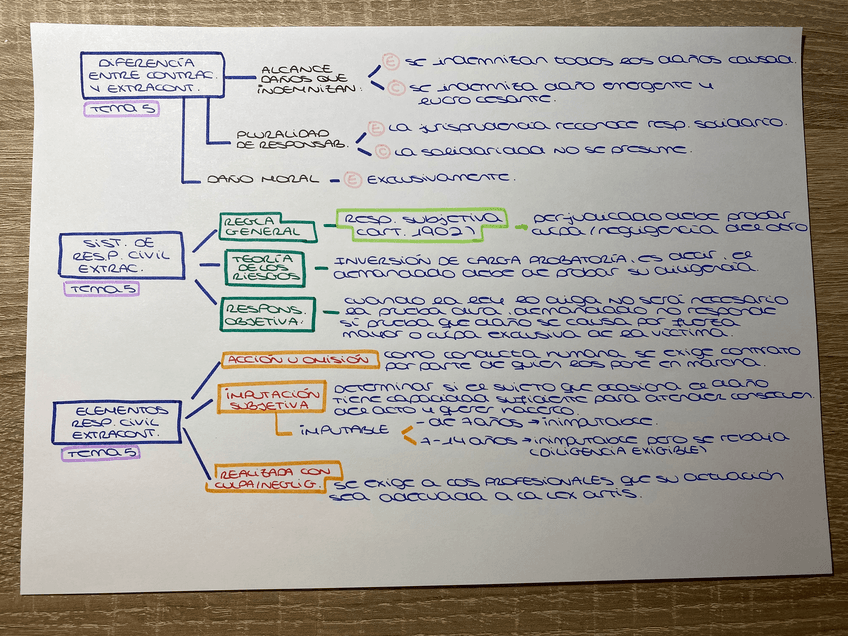 DIFERENCIA
ENTRE CONTRAC.
Y EXTRACONT.
TEMA 5
ALCANCE
DAÑOS QUE
INDEMNIZAN:
E SE INDEMNIZAN TODOS LOS DAÑOS CAUSAD.
C SE INDEMNIZA DAÑO EMERGENTE Y
LUCRO CESANTE.
PLURALIDAD
DE RESPONSAB.
E LA JURISPRUDENCIA RECONOCE RESP. SOLIDARIO.
C LA SOLIDARIDAD NO SE PRESUME.
DAÑO MORAL - E EXCLUSIVAMENTE.
SIST. DE
RESP. CIVIL
EXTRAC.
TEMA 5
REGLA
GENERAL
RESP. SUBJETIVA
(ART. 1902)
PERJUDICADO DEBE PROBAR
CULPA/NEGLIGENCIA DEL OTRO
TEORÍA
DE LOS
RIESGOS
INVERSIÓN DE CARGA PROBATORIA, ES DECIR, EL
DEMANDADO DEBE DE PROBAR SU DILIGENCIA.
RESPONS.
OBJETIVA:
CUANDO LA LEY LO DIGA NO SERÁ NECESARIO
LA PRUEBA DURA. DEMANDADO NO RESPONDE
SI PRUEBA QUE DAÑO SE CAUSA POR FUERZA
MAYOR O CULPA EXCLUSIVA DE LA VÍCTIMA.
ELEMENTOS
RESP. CIVIL
EXTRACONT.
TEMA 5
ACCIÓN U OMISIÓN
COMO CONDUCTA HUMANA SE EXIGE CONTRATO
POR PARTE DE QUIEN LOS PONE EN MARCHA.
IMPUTACIÓN
SUBJETIVA
DETERMINAR SI EL SUJETO QUE OCASIONA EL DAÑO
TIENE CAPACIDAD SUFICIENTE PARA ATENDER CONSECUEN.
DEL ACTO Y QUERER HACERLO.
IMPUTABLE
- DE 7 AÑOS → INIMPUTABLE.
7-14 AÑOS → INIMPUTABLE PERO SE REBAJA
(DILIGENCIA EXIGIBLE)
REALIZADA CON
CULPA/NEGLIG.
SE EXIGE A LOS PROFESIONALES QUE SU ACTUACIÓN
SEA ADECUADA A LA LEX ARTIS.